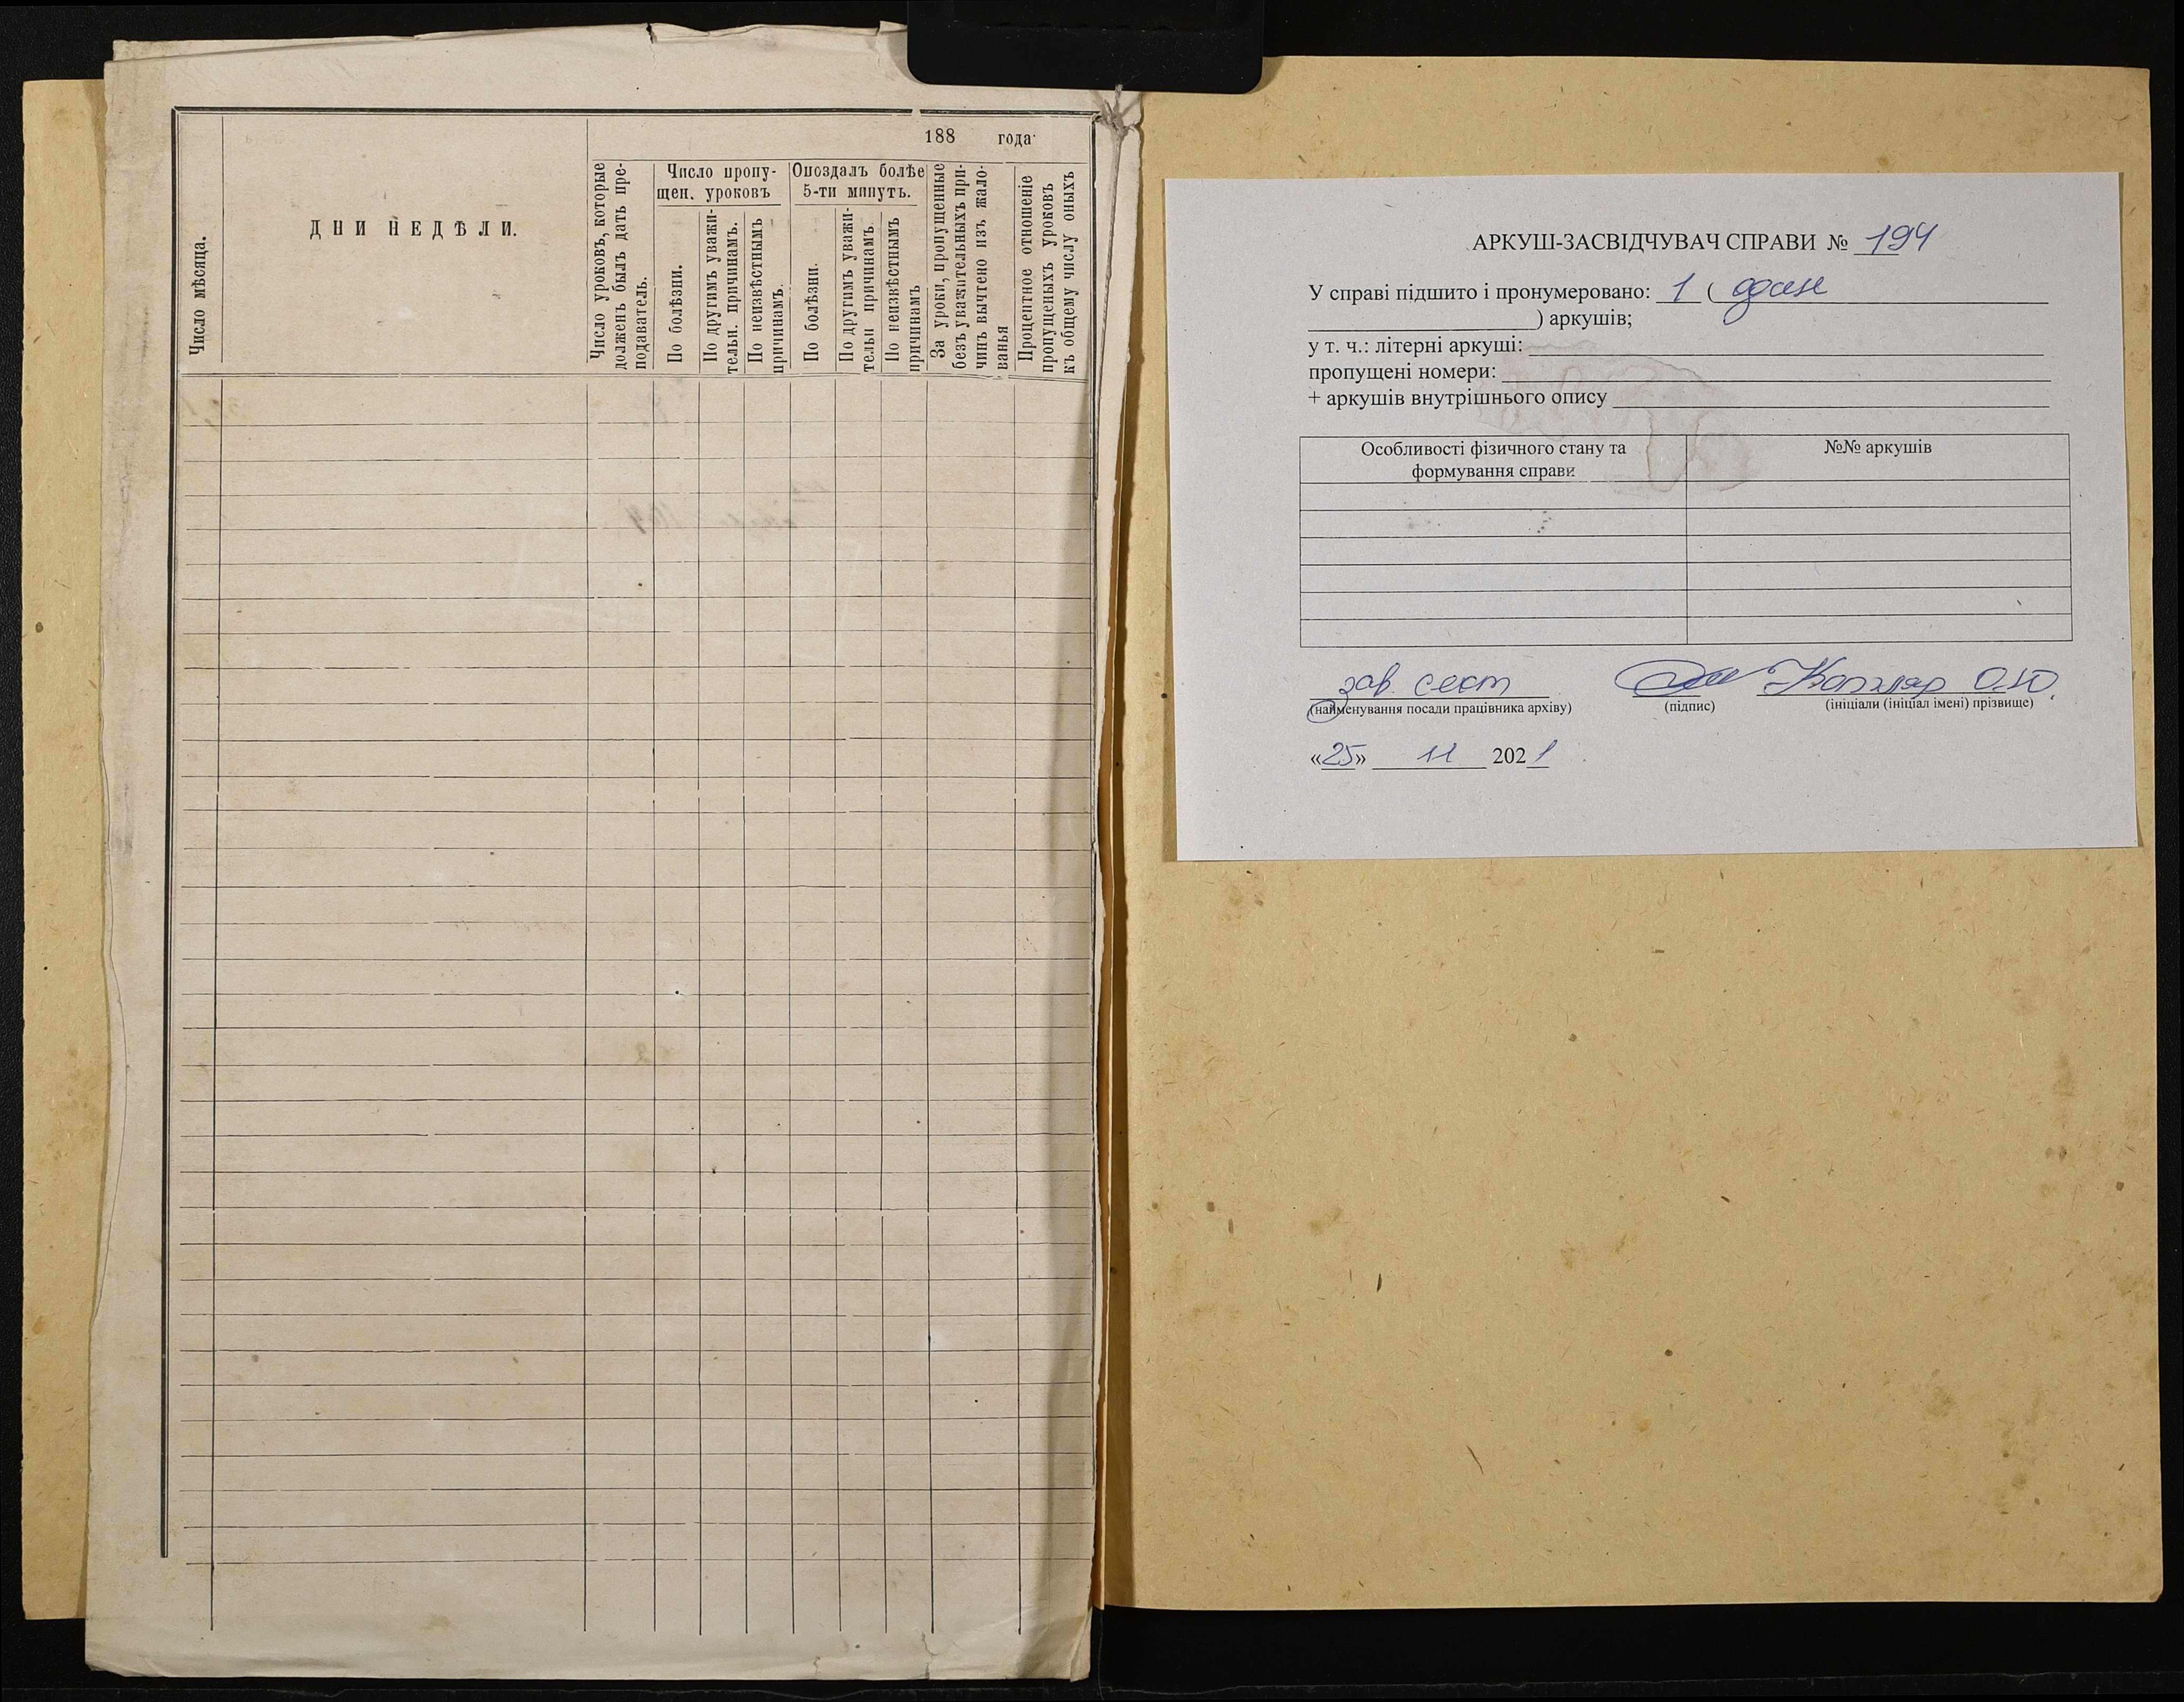 188 года
Число мѣсяца.
ДНИ НЕДѢЛИ.
Число уроковъ, которые
долженъ былъ дать пре-
подаватель.
Число пропу-
щен. уроковъ
По болѣзни.
По другимъ уважи-
тельн. причинамъ.
По неизвѣстнымъ
причинамъ.
Опоздалъ болѣе
5-ти минутъ.
По болѣзни.
По другимъ уважи-
тельн причинамъ.
По неизвѣстнымъ
причинамъ
За уроки, пропущенные
безъ уважительныхъ при-
чинъ вычтено изъ жало-
ванья
Процентное отношеніе
пропущеныхъ уроковъ
къ общему числу оныхъ
АРКУШ-ЗАСВІДЧУВАЧ СПРАВИ № 194
У справі підшито і пронумеровано: 1 ( один
) аркушів;
у т. ч.: літерні аркуші:
пропущені номери:
+ аркушів внутрішнього опису
Особливості фізичного стану та
формування справи
№№ аркушів
зав. сект
О.Ю.
(найменування посади працівника архіву) (підпис) (ініціали (ініціал імені) прізвище)
«25» 11 2021